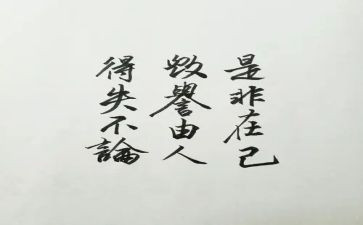 是非在己
毀譽由人
得失不論